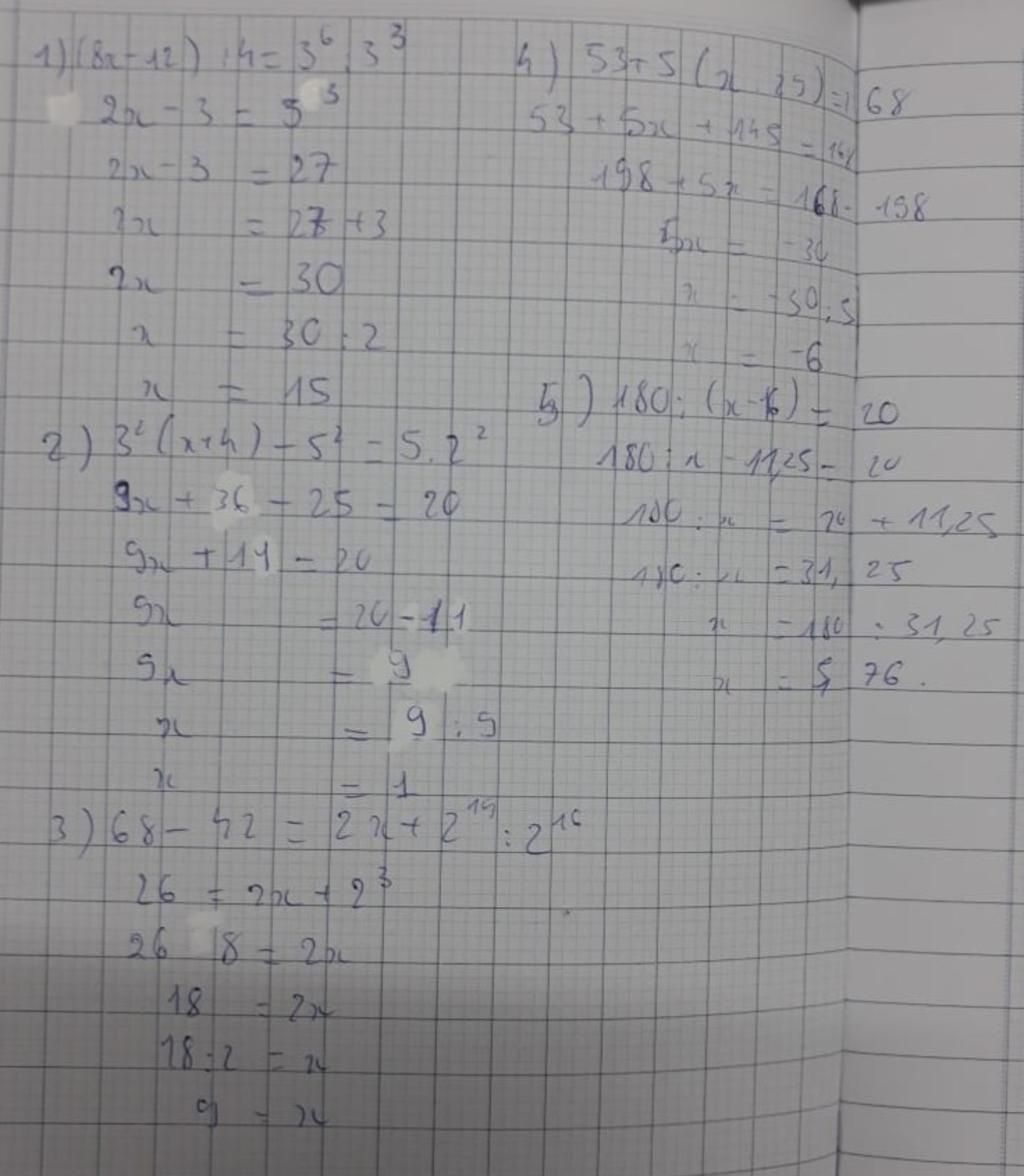 1) (8x - 12) : 4 = 3⁶ : 3³
2x - 3 = 3³
2x - 3 = 27
2x = 27 + 3
2x = 30
x = 30 : 2
x = 15
2) 3² (x+4) - 5² = 5.2²
9x + 36 - 25 = 20
9x + 11 = 20
9x = 20 - 11
9x = 9
x = 9 : 9
x = 1
3) 68 - 42 = 2x + 2¹⁹ : 2¹⁶
26 = 2x + 2³
26 8 = 2x
18 = 2x
18 : 2 = x
9 = x
4) 53 + 5 (x 29) = 168
53 + 5x + 145 = 168
198 + 5x = 168 - 198
5x = -30
x = -30 : 5
x = -6
5) 180 : (x - 16) = 20
180 : x - 11,25 = 20
180 : x = 20 + 11,25
180 : x = 31,25
x = 180 : 31,25
x = 5,76.